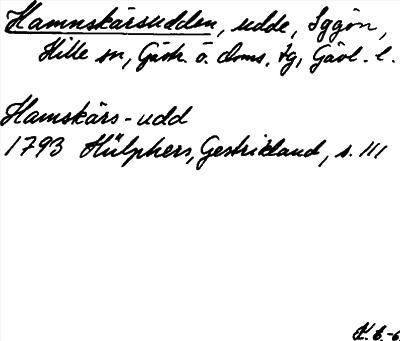 Hamnskärsudden, udde, Iggön,
Hille sn, Gävl. ö. doms. tg, Gävl. l.
Hamskärs-udd
1793 Hülphers, Gestrikland, s. 111